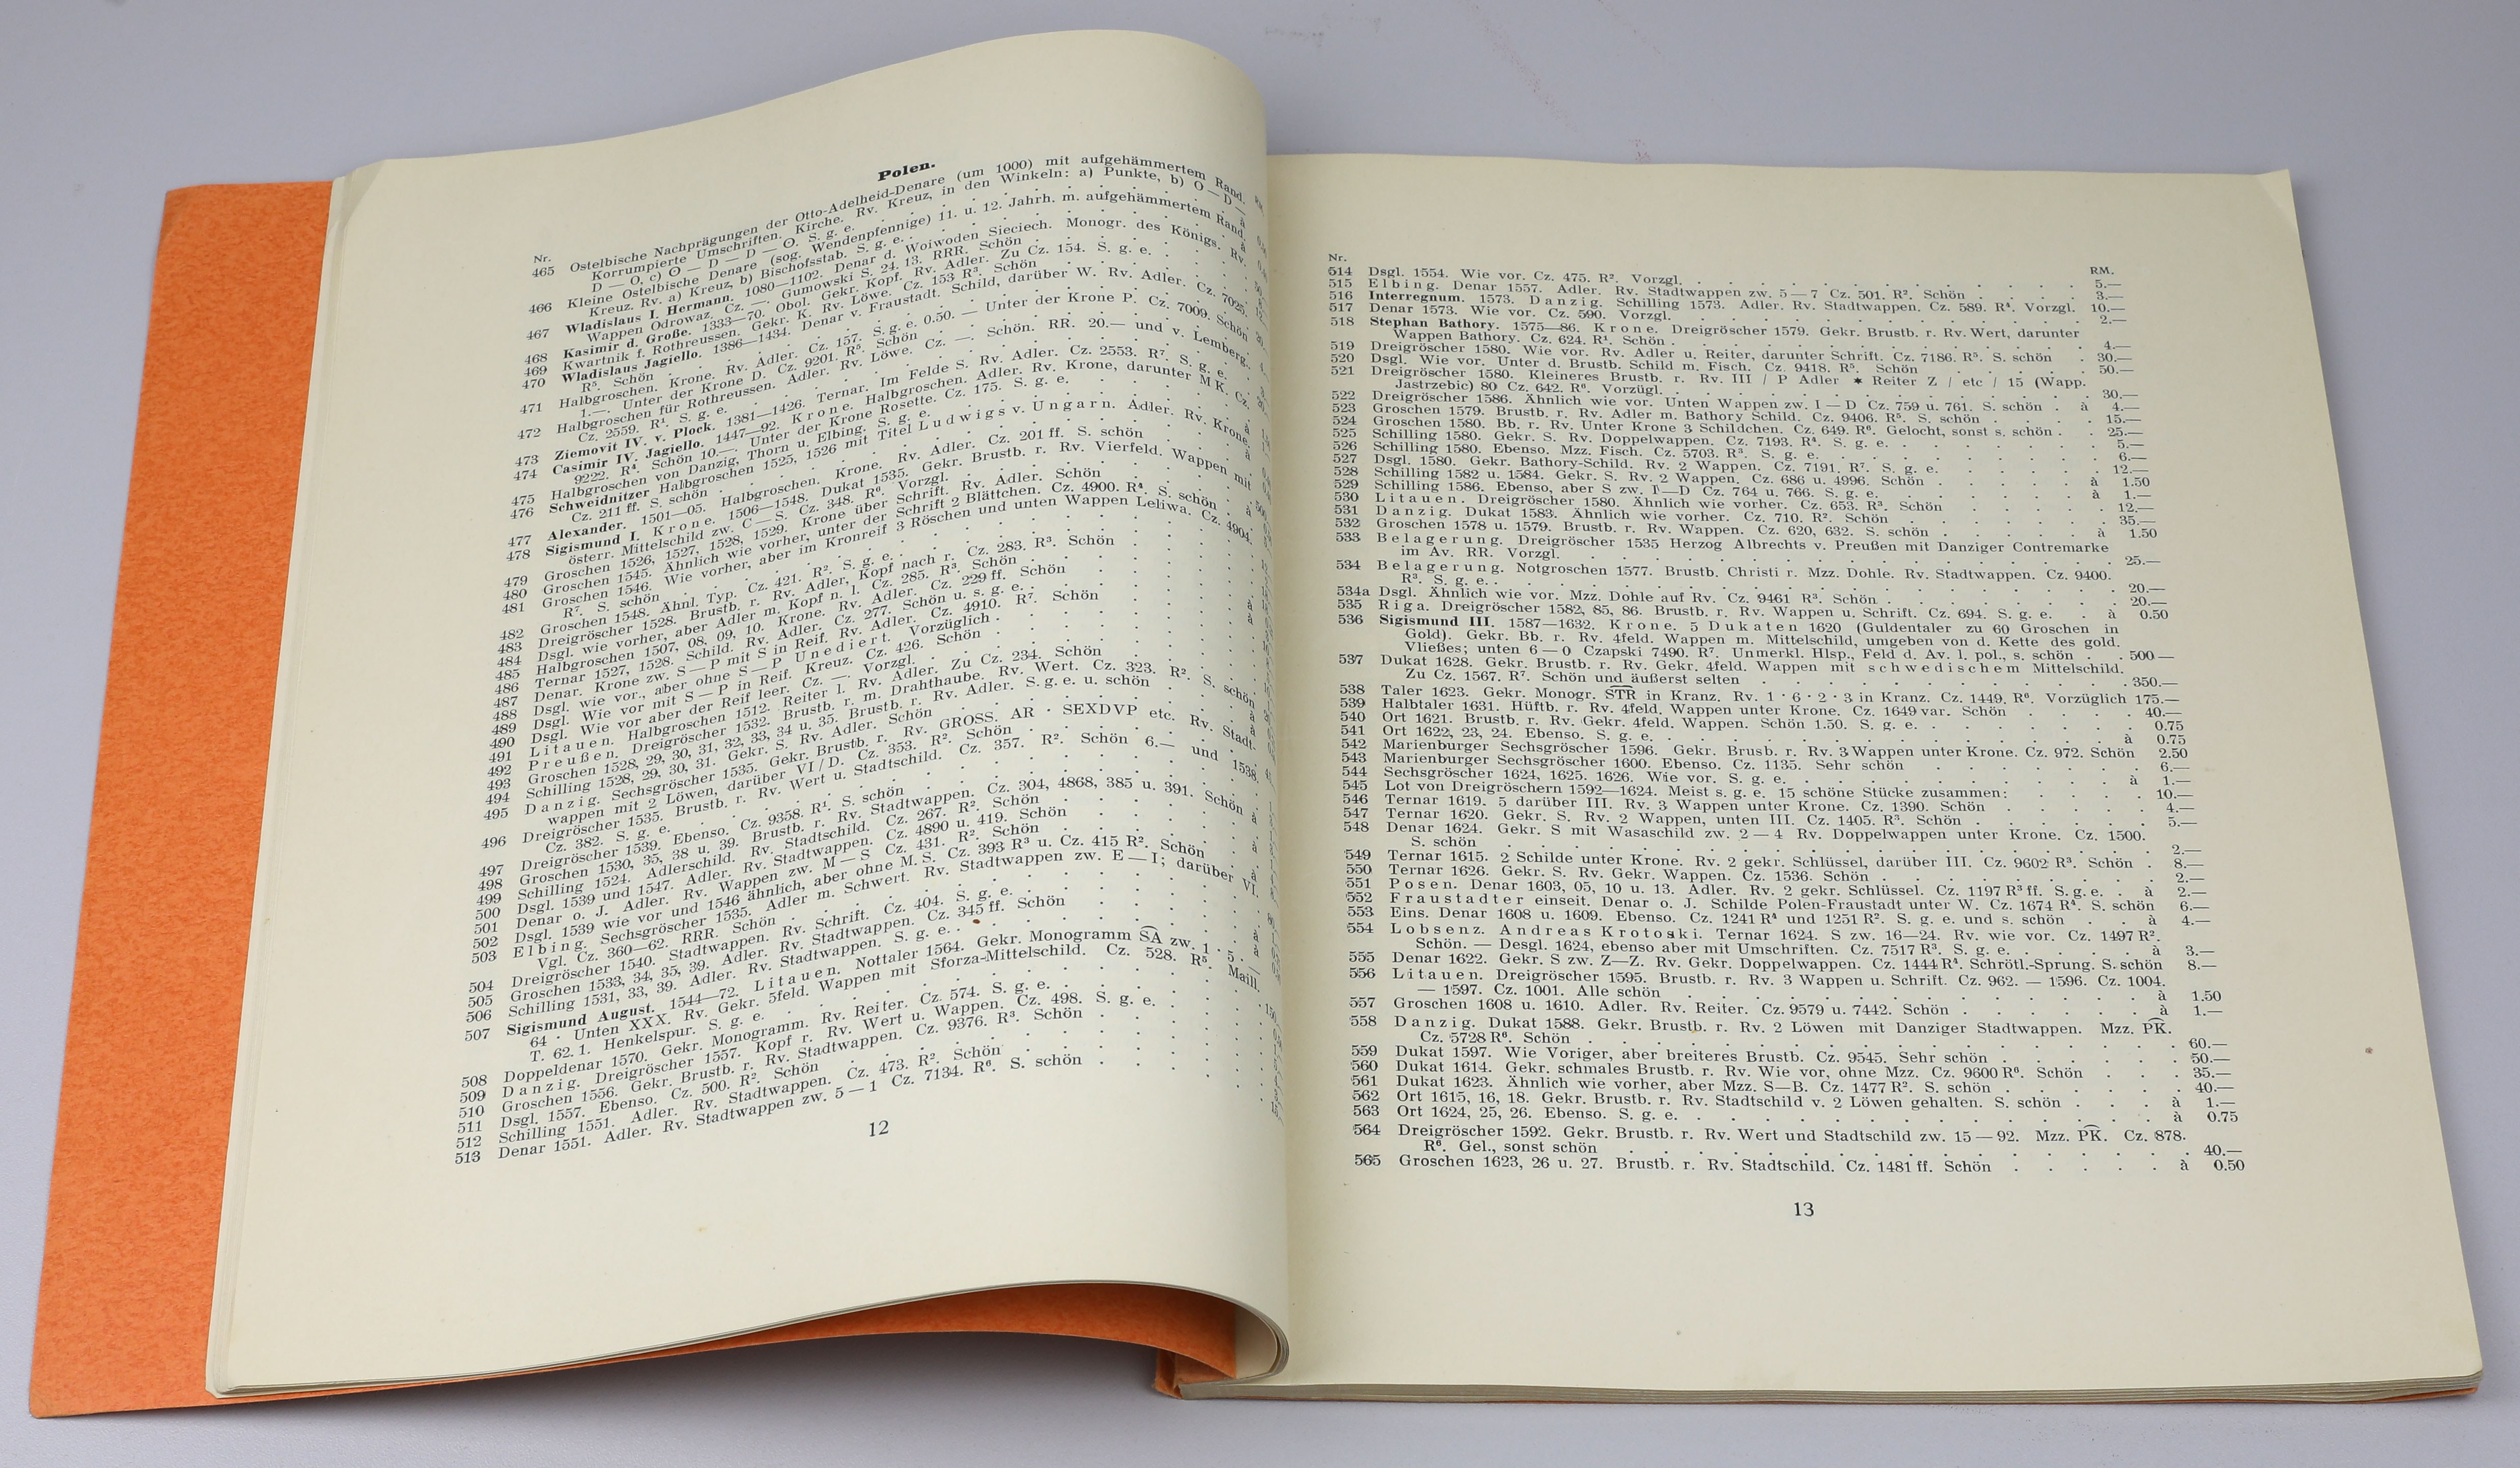 Polen.
Nr.
465 Ostelbische Nachprägungen der Otto-Adelheid-Denare (um 1000) mit aufgehämmertem Rand.
Korrumpierte Umschriften. Kirche. Rv. Kreuz, in den Winkeln: a) Punkte, b) O — D —
D — O, c) O — D — D — O. S. g. e. . . . à
466 Kleine Ostelbische Denare (sog. Wendenpfennige) 11. u. 12. Jahrh. m. aufgehämmertem Rand.
Kreuz. Rv. a) Kreuz, b) Bischofsstab. S. g. e. . . . à
467 Wladislaus I. Hermann. 1080—1102. Denar d. Woiwoden Sieciech. Monogr. des Königs. Rv.
Wappen Odrowaz. Cz. —. Gumowski S. 24. 13. RRR. Schön
468 Kasimir d. Große. 1333—70. Obol. Gekr. Kopf. Rv. Adler. Zu Cz. 154. S. g. e.
469 Kwartnik f. Rothreussen. Gekr. K. Rv. Löwe. Cz. 153 R³. Schön
470 Wladislaus Jagiello. 1386—1434. Denar v. Fraustadt. Schild, darüber W. Rv. Adler. Cz. 7025.
R⁵. Schön
471 Halbgroschen. Krone. Rv. Adler. Cz. 157. S. g. e. 0.50. — Unter der Krone P. Cz. 7009. Schön
1.—. Unter der Krone D. Cz. 9201. R⁵. Schön
472 Halbgroschen für Rothreussen. Adler. Rv. Löwe. Cz. —. Schön. RR. 20.— und v. Lemberg.
Cz. 2559. R¹. S. g. e.
473 Ziemovit IV. v. Plock. 1381—1426. Ternar. Im Felde S. Rv. Adler. Cz. 2553. R⁷. S. g. e.
474 Casimir IV. Jagiello. 1447—92. Krone. Halbgroschen. Adler. Rv. Krone, darunter MK. Cz.
9222. R⁴. Schön 10.—. Unter der Krone Rosette. Cz. 175. S. g. e.
475 Halbgroschen von Danzig, Thorn u. Elbing. S. g. e.
476 Schweidnitzer Halbgroschen 1525, 1526 mit Titel Ludwigs v. Ungarn. Adler. Rv. Krone.
Cz. 211 ff. S. schön
477 Alexander. 1501—05. Halbgroschen. Krone. Rv. Adler. Cz. 201 ff. S. schön
478 Sigismund I. Krone. 1506—1548. Dukat 1535. Gekr. Brustb. r. Rv. Vierfeld. Wappen mit
österr. Mittelschild zw. C—S. Cz. 348. R⁶. Vorzgl.
479 Groschen 1526, 1527, 1528, 1529. Krone über Schrift. Rv. Adler. Schön
480 Groschen 1545. Ähnlich wie vorher, unter der Schrift 2 Blättchen. Cz. 4900. R⁴. S. schön
481 Groschen 1546. Wie vorher, aber im Kronreif 3 Röschen und unten Wappen Leliwa. Cz. 4904.
R⁷. S. schön
482 Groschen 1548. Ähnl. Typ. Cz. 421. R². S. g. e.
483 Dreigröscher 1528. Brustb. r. Rv. Adler, Kopf nach r. Cz. 283. R³. Schön
484 Dsgl. wie vorher, aber Adler m. Kopf n. l. Cz. 285. R³. Schön
485 Halbgroschen 1507, 08, 09, 10. Krone. Rv. Adler. Cz. 229 ff. Schön
486 Ternar 1527, 1528. Schild. Rv. Adler. Cz. 277. Schön u. s. g. e.
487 Denar. Krone zw. S—P mit S in Reif. Rv. Adler. Cz. 4910. R⁷. Schön
488 Dsgl. wie vor., aber ohne S—P Unediert. Vorzüglich
489 Dsgl. Wie vor mit S—P in Reif. Kreuz. Cz. 426. Schön
490 Dsgl. Wie vor aber der Reif leer. Cz. —. Vorzgl.
491 Litauen. Halbgroschen 1512. Reiter l. Rv. Adler. Zu Cz. 234. Schön
492 Preußen. Dreigröscher 1532. Brustb. r. m. Drahthaube. Rv. Wert. Cz. 323. R². S. schön
493 Groschen 1528, 29, 30, 31, 32, 33, 34 u. 35. Brustb. r. Rv. Adler. S. g. e. u. schön
494 Schilling 1528, 29, 30, 31. Gekr. S. Rv. Adler. Schön
495 Danzig. Sechsgröscher 1535. Gekr. Brustb. r. Rv. GROSS. AR · SEXDVP etc. Rv. Stadt-
wappen mit 2 Löwen, darüber VI/D. Cz. 353. R². Schön
496 Dreigröscher 1535. Brustb. r. Rv. Wert u. Stadtschild. Cz. 357. R². Schön 6.— und 1538.
Cz. 382. S. g. e.
497 Dreigröscher 1539. Ebenso. Cz. 9358. R¹. S. schön
498 Groschen 1530, 35, 38 u. 39. Brustb. r. Rv. Stadtwappen. Cz. 304, 4868, 385 u. 391. Schön à
499 Schilling 1524. Adlerschild. Rv. Stadtschild. Cz. 267. R². Schön
500 Dsgl. 1539 und 1547. Adler. Rv. Stadtwappen. Cz. 4890 u. 419. Schön
501 Denar o. J. Adler. Rv. Wappen zw. M—S Cz. 431. R². Schön
502 Dsgl. 1539 wie vor und 1546 ähnlich, aber ohne M. S. Cz. 393 R³ u. Cz. 415 R². Schön à
503 Elbing. Sechsgröscher 1535. Adler m. Schwert. Rv. Stadtwappen zw. E—I; darüber VI.
Vgl. Cz. 360—62. RRR. Schön
504 Dreigröscher 1540. Stadtwappen. Rv. Schrift. Cz. 404. S. g. e.
505 Groschen 1533, 34, 35, 39. Adler. Rv. Stadtwappen. Cz. 345 ff. Schön
506 Schilling 1531, 33, 39. Adler. Rv. Stadtwappen. S. g. e.
507 Sigismund August. 1544—72. Litauen. Nottaler 1564. Gekr. Monogramm SA zw. 1 · 5 —
64 · Unten XXX. Rv. Gekr. 5feld. Wappen mit Sforza-Mittelschild. Cz. 528. R⁵. Maill.
T. 62. 1. Henkelspur. S. g. e.
508 Doppeldenar 1570. Gekr. Monogramm. Rv. Reiter. Cz. 574. S. g. e.
509 Danzig. Dreigröscher 1557. Kopf r. Rv. Wert u. Wappen. Cz. 498. S. g. e.
510 Groschen 1556. Gekr. Brustb. r. Rv. Stadtwappen. Cz. 9376. R³. Schön
511 Dsgl. 1557. Ebenso. Cz. 500. R². Schön
512 Schilling 1551. Adler. Rv. Stadtwappen. Cz. 473. R². Schön
513 Denar 1551. Adler. Rv. Stadtwappen zw. 5—1 Cz. 7134. R⁶. S. schön
12
Nr. RM.
514 Dsgl. 1554. Wie vor. Cz. 475. R². Vorzgl. 5.—
515 Elbing. Denar 1557. Adler. Rv. Stadtwappen zw. 5—7 Cz. 501. R². Schön 3.—
516 Interregnum. 1573. Danzig. Schilling 1573. Adler. Rv. Stadtwappen. Cz. 589. R⁴. Vorzgl. 10.—
517 Denar 1573. Wie vor. Cz. 590. Vorzgl. 2.—
518 Stephan Bathory. 1575—86. Krone. Dreigröscher 1579. Gekr. Brustb. r. Rv. Wert, darunter
Wappen Bathory. Cz. 624. R¹. Schön 4.—
519 Dreigröscher 1580. Wie vor. Rv. Adler u. Reiter, darunter Schrift. Cz. 7186. R⁵. S. schön 30.—
520 Dsgl. Wie vor. Unter d. Brustb. Schild m. Fisch. Cz. 9418. R⁵. Schön 50.—
521 Dreigröscher 1580. Kleineres Brustb. r. Rv. III / P Adler * Reiter Z / etc / 15 (Wapp.
Jastrzebic) 80 Cz. 642. R⁶. Vorzügl. 30.—
522 Dreigröscher 1586. Ähnlich wie vor. Unten Wappen zw. I—D Cz. 759 u. 761. S. schön . à 4.—
523 Groschen 1579. Brustb. r. Rv. Adler m. Bathory Schild. Cz. 9406. R⁵. S. schön 15.—
524 Groschen 1580. Bb. r. Rv. Unter Krone 3 Schildchen. Cz. 649. R⁶. Gelocht, sonst s. schön 25.—
525 Schilling 1580. Gekr. S. Rv. Doppelwappen. Cz. 7193. R⁴. S. g. e. 5.—
526 Schilling 1580. Ebenso. Mzz. Fisch. Cz. 5703. R³. S. g. e. 6.—
527 Dsgl. 1580. Gekr. Bathory-Schild. Rv. 2 Wappen. Cz. 7191. R⁷. S. g. e. 12.—
528 Schilling 1582 u. 1584. Gekr. S. Rv. 2 Wappen. Cz. 686 u. 4996. Schön à 1.50
529 Schilling 1586. Ebenso, aber S zw. I—D Cz. 764 u. 766. S. g. e. à 1.—
530 Litauen. Dreigröscher 1580. Ähnlich wie vorher. Cz. 653. R³. Schön 12.—
531 Danzig. Dukat 1583. Ähnlich wie vorher. Cz. 710. R². Schön 35.—
532 Groschen 1578 u. 1579. Brustb. r. Rv. Wappen. Cz. 620, 632. S. schön à 1.50
533 Belagerung. Dreigröscher 1535 Herzog Albrechts v. Preußen mit Danziger Contremarke
im Av. RR. Vorzgl. 25.—
534 Belagerung. Notgroschen 1577. Brustb. Christi r. Mzz. Dohle. Rv. Stadtwappen. Cz. 9400.
R³. S. g. e. 20.—
534a Dsgl. Ähnlich wie vor. Mzz. Dohle auf Rv. Cz. 9461 R³. Schön 20.—
535 Riga. Dreigröscher 1582, 85, 86. Brustb. r. Rv. Wappen u. Schrift. Cz. 694. S. g. e. . à 0.50
536 Sigismund III. 1587—1632. Krone. 5 Dukaten 1620 (Guldentaler zu 60 Groschen in
Gold). Gekr. Bb. r. Rv. 4feld. Wappen m. Mittelschild, umgeben von d. Kette des gold.
Vließes; unten 6—0 Czapski 7490. R⁷. Unmerkl. Hlsp., Feld d. Av. l. pol., s. schön . . 500—
537 Dukat 1628. Gekr. Brustb. r. Rv. Gekr. 4feld. Wappen mit schwedischem Mittelschild.
Zu Cz. 1567. R⁷. Schön und äußerst selten 350.—
538 Taler 1623. Gekr. Monogr. STR in Kranz. Rv. 1 · 6 · 2 · 3 in Kranz. Cz. 1449. R⁶. Vorzüglich 175.—
539 Halbtaler 1631. Hüftb. r. Rv. 4feld. Wappen unter Krone. Cz. 1649 var. Schön 40.—
540 Ort 1621. Brustb. r. Rv. Gekr. 4feld. Wappen. Schön 1.50. S. g. e. 0.75
541 Ort 1622, 23, 24. Ebenso. S. g. e. à 0.75
542 Marienburger Sechsgröscher 1596. Gekr. Brusb. r. Rv. 3 Wappen unter Krone. Cz. 972. Schön 2.50
543 Marienburger Sechsgröscher 1600. Ebenso. Cz. 1135. Sehr schön 6.—
544 Sechsgröscher 1624, 1625. 1626. Wie vor. S. g. e. à 1.—
545 Lot von Dreigröschern 1592—1624. Meist s. g. e. 15 schöne Stücke zusammen: 10.—
546 Ternar 1619. 5 darüber III. Rv. 3 Wappen unter Krone. Cz. 1390. Schön 4.—
547 Ternar 1620. Gekr. S. Rv. 2 Wappen, unten III. Cz. 1405. R³. Schön 5.—
548 Denar 1624. Gekr. S mit Wasaschild zw. 2—4 Rv. Doppelwappen unter Krone. Cz. 1500.
S. schön 2.—
549 Ternar 1615. 2 Schilde unter Krone. Rv. 2 gekr. Schlüssel, darüber III. Cz. 9602 R³. Schön . 8.—
550 Ternar 1626. Gekr. S. Rv. Gekr. Wappen. Cz. 1536. Schön 2.—
551 Posen. Denar 1603, 05, 10 u. 13. Adler. Rv. 2 gekr. Schlüssel. Cz. 1197 R³ ff. S. g. e. . à 2.—
552 Fraustadter einseit. Denar o. J. Schilde Polen-Fraustadt unter W. Cz. 1674 R⁴. S. schön 6.—
553 Eins. Denar 1608 u. 1609. Ebenso. Cz. 1241 R⁴ und 1251 R². S. g. e. und s. schön . . à 4.—
554 Lobsenz. Andreas Krotoski. Ternar 1624. S zw. 16—24. Rv. wie vor. Cz. 1497 R².
Schön. — Desgl. 1624, ebenso aber mit Umschriften. Cz. 7517 R³. S. g. e. à 3.—
555 Denar 1622. Gekr. S zw. Z—Z. Rv. Gekr. Doppelwappen. Cz. 1444 R⁴. Schrötl.-Sprung. S. schön 8.—
556 Litauen. Dreigröscher 1595. Brustb. r. Rv. 3 Wappen u. Schrift. Cz. 962. — 1596. Cz. 1004.
— 1597. Cz. 1001. Alle schön à 1.50
557 Groschen 1608 u. 1610. Adler. Rv. Reiter. Cz. 9579 u. 7442. Schön à 1.—
558 Danzig. Dukat 1588. Gekr. Brustb. r. Rv. 2 Löwen mit Danziger Stadtwappen. Mzz. PK.
Cz. 5728 R⁶. Schön 60.—
559 Dukat 1597. Wie Voriger, aber breiteres Brustb. Cz. 9545. Sehr schön 50.—
560 Dukat 1614. Gekr. schmales Brustb. r. Rv. Wie vor, ohne Mzz. Cz. 9600 R⁶. Schön 35.—
561 Dukat 1623. Ähnlich wie vorher, aber Mzz. S—B. Cz. 1477 R². S. schön 40.—
562 Ort 1615, 16, 18. Gekr. Brustb. r. Rv. Stadtschild v. 2 Löwen gehalten. S. schön à 1.—
563 Ort 1624, 25, 26. Ebenso. S. g. e. à 0.75
564 Dreigröscher 1592. Gekr. Brustb. r. Rv. Wert und Stadtschild zw. 15—92. Mzz. PK. Cz. 878.
R⁶. Gel., sonst schön 40.—
565 Groschen 1623, 26 u. 27. Brustb. r. Rv. Stadtschild. Cz. 1481 ff. Schön à 0.50
13